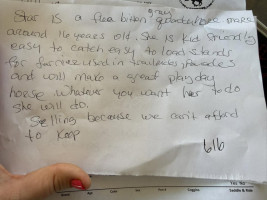 gray
Star is a flea bitten quarterhorse mare
around 16 years old. She is kid friendly
easy to catch easy to load stands
for farrier used in trailrides, parades
and will make a great playday
horse whatever you want her to do
she will do.
Selling because we can't afford
to keep
616
Saddle & Ride